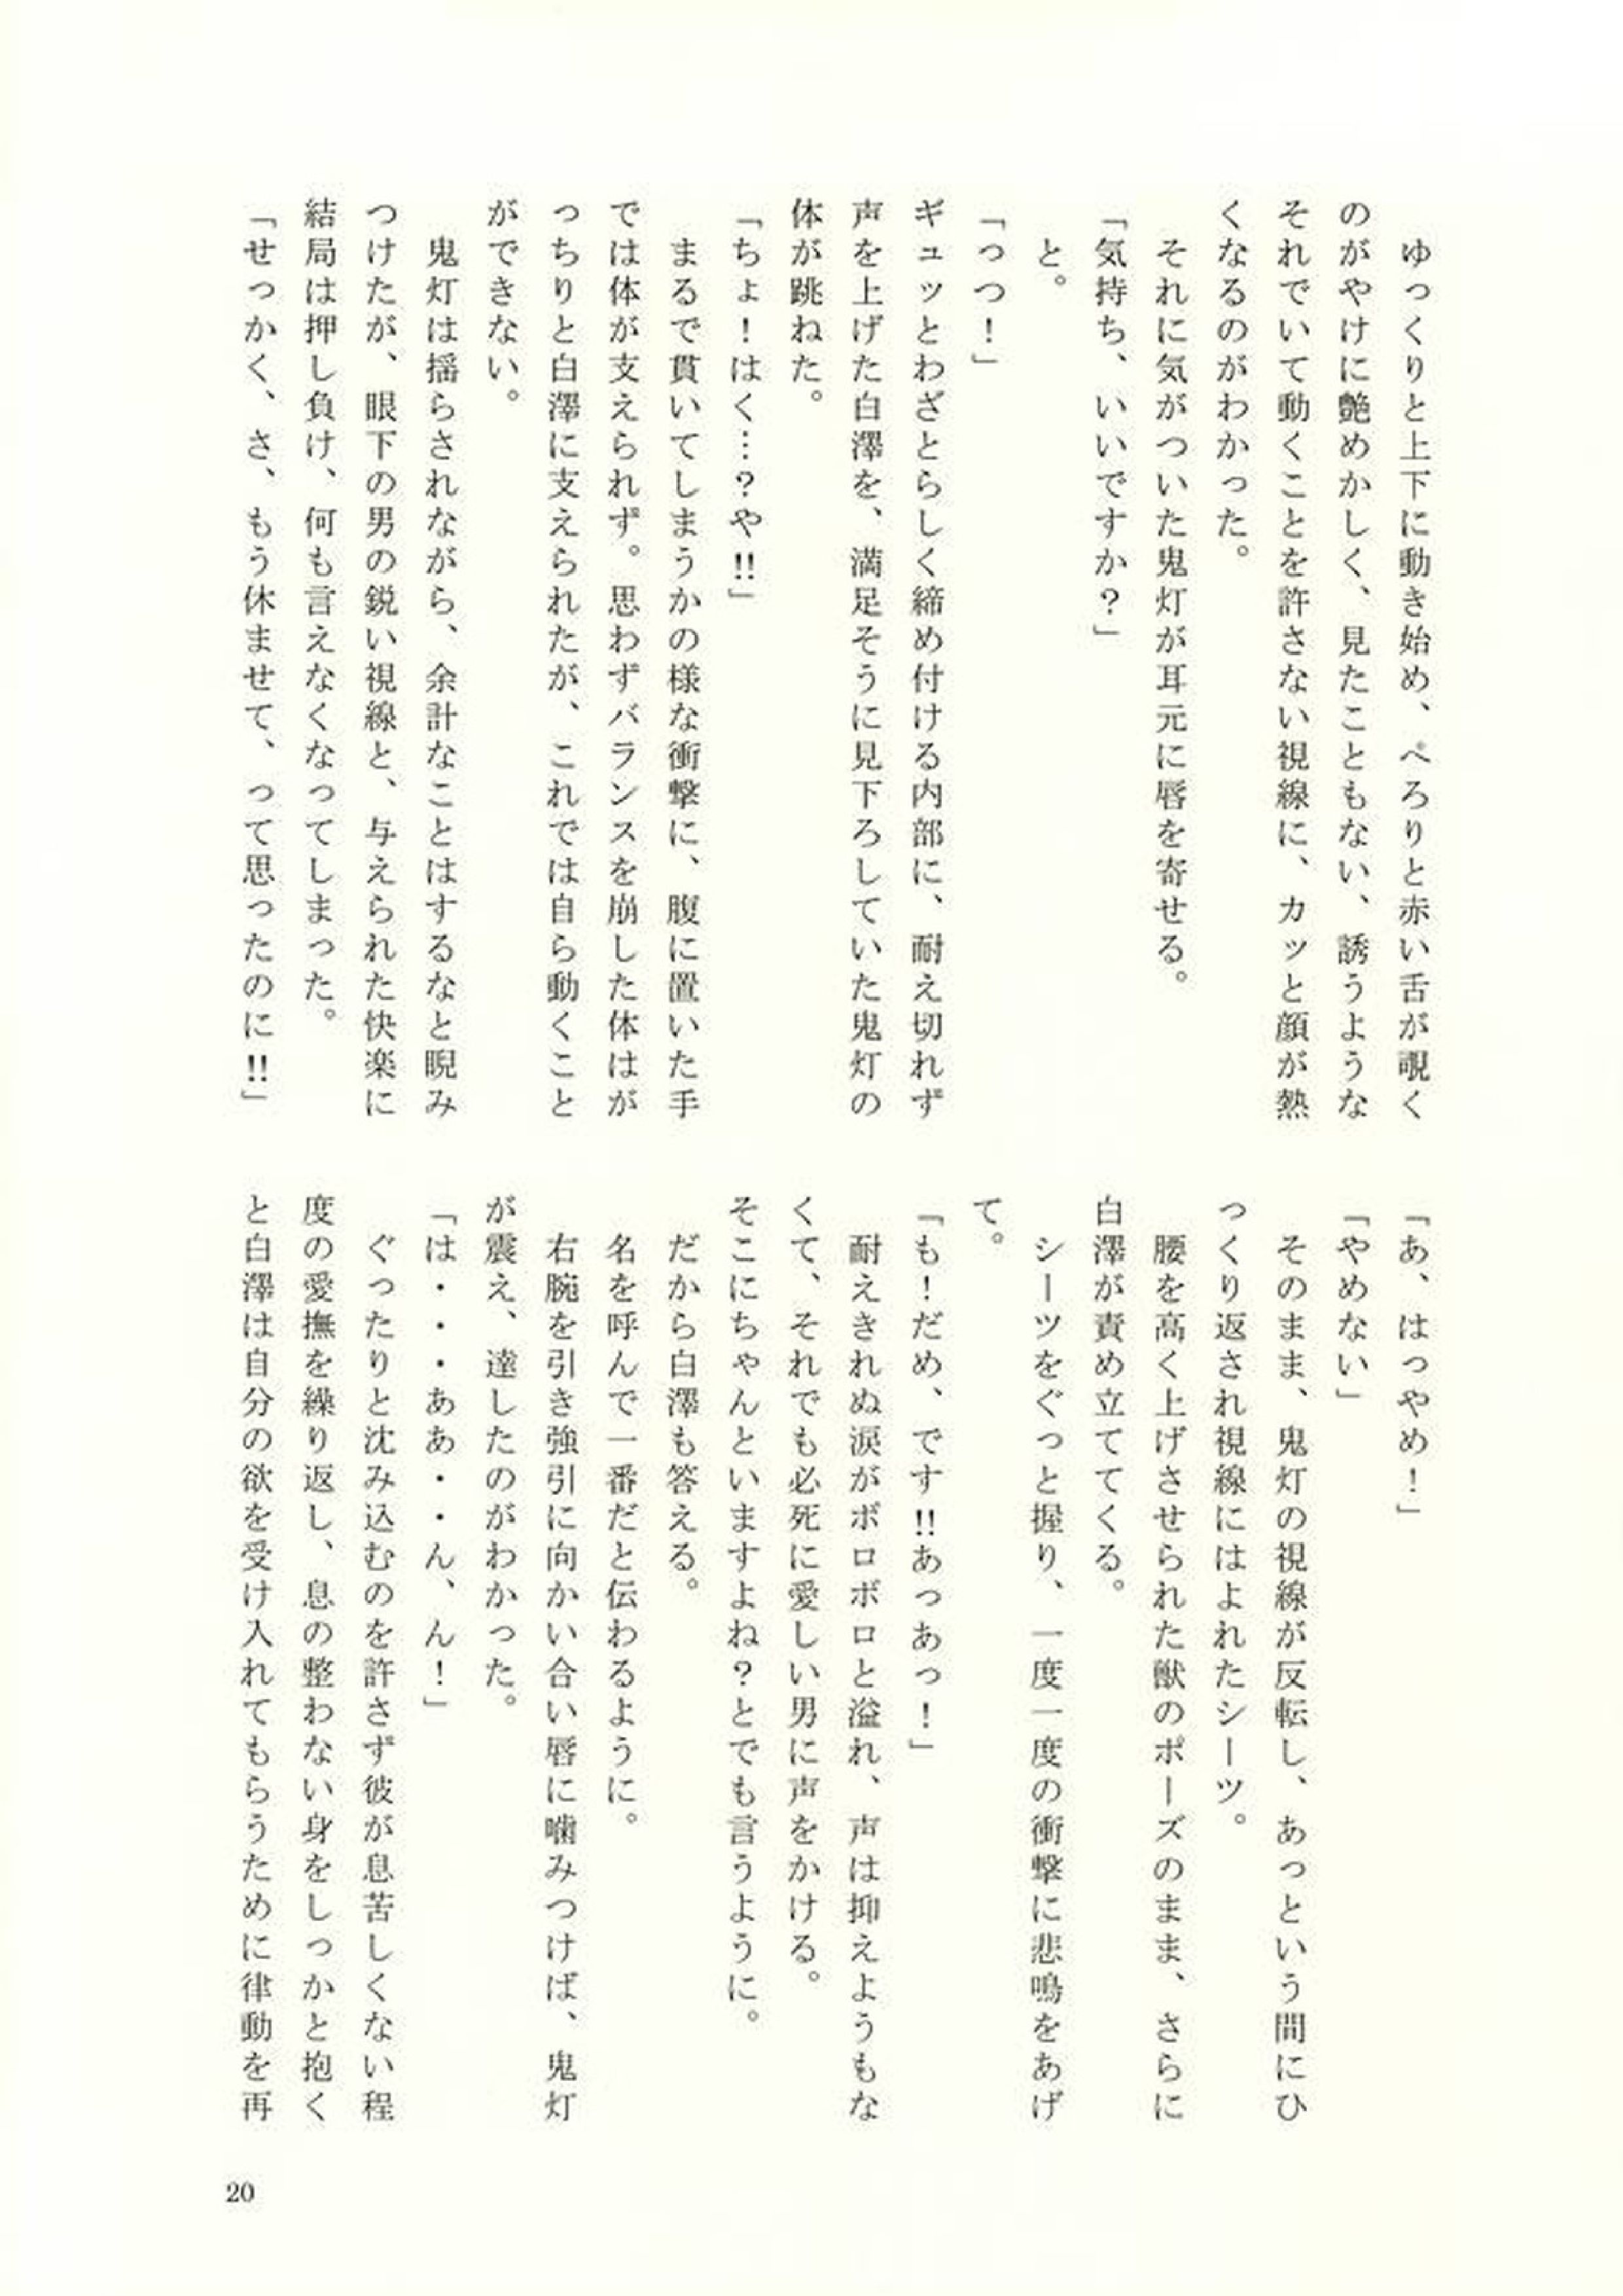 ゆっくりと上下に動き始め、ぺろりと赤い舌が覗く
のがやけに艶めかしく、見たこともない、誘うような
それでいて動くことを許さない視線に、カッと顔が熱
くなるのがわかった。
それに気がついた鬼灯が耳元に唇を寄せる。
「気持ち、いいですか？」
と。
「っつ！」
ギュッとわざとらしく締め付ける内部に、耐え切れず
声を上げた白澤を、満足そうに見下ろしていた鬼灯の
体が跳ねた。
「ちょ！はく…？や‼」
まるで貫いてしまうかの様な衝撃に、腹に置いた手
では体が支えられず。思わずバランスを崩した体はが
っちりと白澤に支えられたが、これでは自ら動くこと
ができない。
鬼灯は揺らされながら、余計なことはするなと睨み
つけたが、眼下の男の鋭い視線と、与えられた快楽に
結局は押し負け、何も言えなくなってしまった。
「せっかく、さ、もう休ませて、って思ったのに‼」
「あ、はっやめ！」
「やめない」
そのまま、鬼灯の視線が反転し、あっという間にひ
っくり返され視線にはよれたシーツ。
腰を高く上げさせられた獣のポーズのまま、さらに
白澤が責め立ててくる。
シーツをぐっと握り、一度一度の衝撃に悲鳴をあげ
て。
「も！だめ、です‼あっあっ！」
耐えきれぬ涙がボロボロと溢れ、声は抑えようもな
くて、それでも必死に愛しい男に声をかける。
そこにちゃんといますよね？とでも言うように。
だから白澤も答える。
名を呼んで一番だと伝わるように。
右腕を引き強引に向かい合い唇に噛みつけば、鬼灯
が震え、達したのがわかった。
「は・・・ああ・・ん、ん！」
ぐったりと沈み込むのを許さず彼が息苦しくない程
度の愛撫を繰り返し、息の整わない身をしっかと抱く
と白澤は自分の欲を受け入れてもらうために律動を再
20